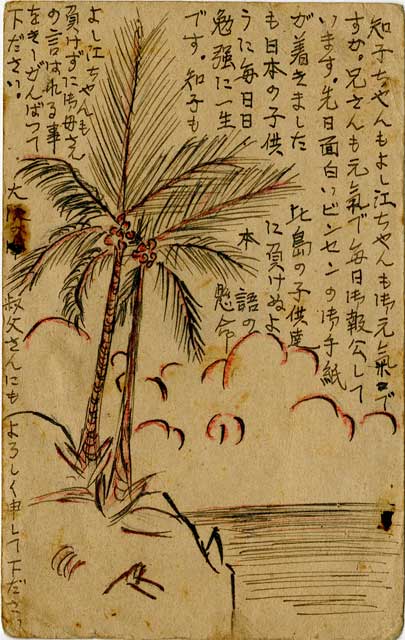 知子ちやんもよし江ちやんも御元氣で
すか。兄さんも元氣で毎日御報公して
います。先日面白いビンセンの御手紙
が着きました 比島の子供達
も日本の子供、に負けぬよ
うに毎日日本語の
勉強に一生懸命
です。知子も
よし江ちやんも
負けずに御母さん
の言はれる事
をきゝがんばつて
下ださい。 大 叔父さんにもよろしく申して下ださい